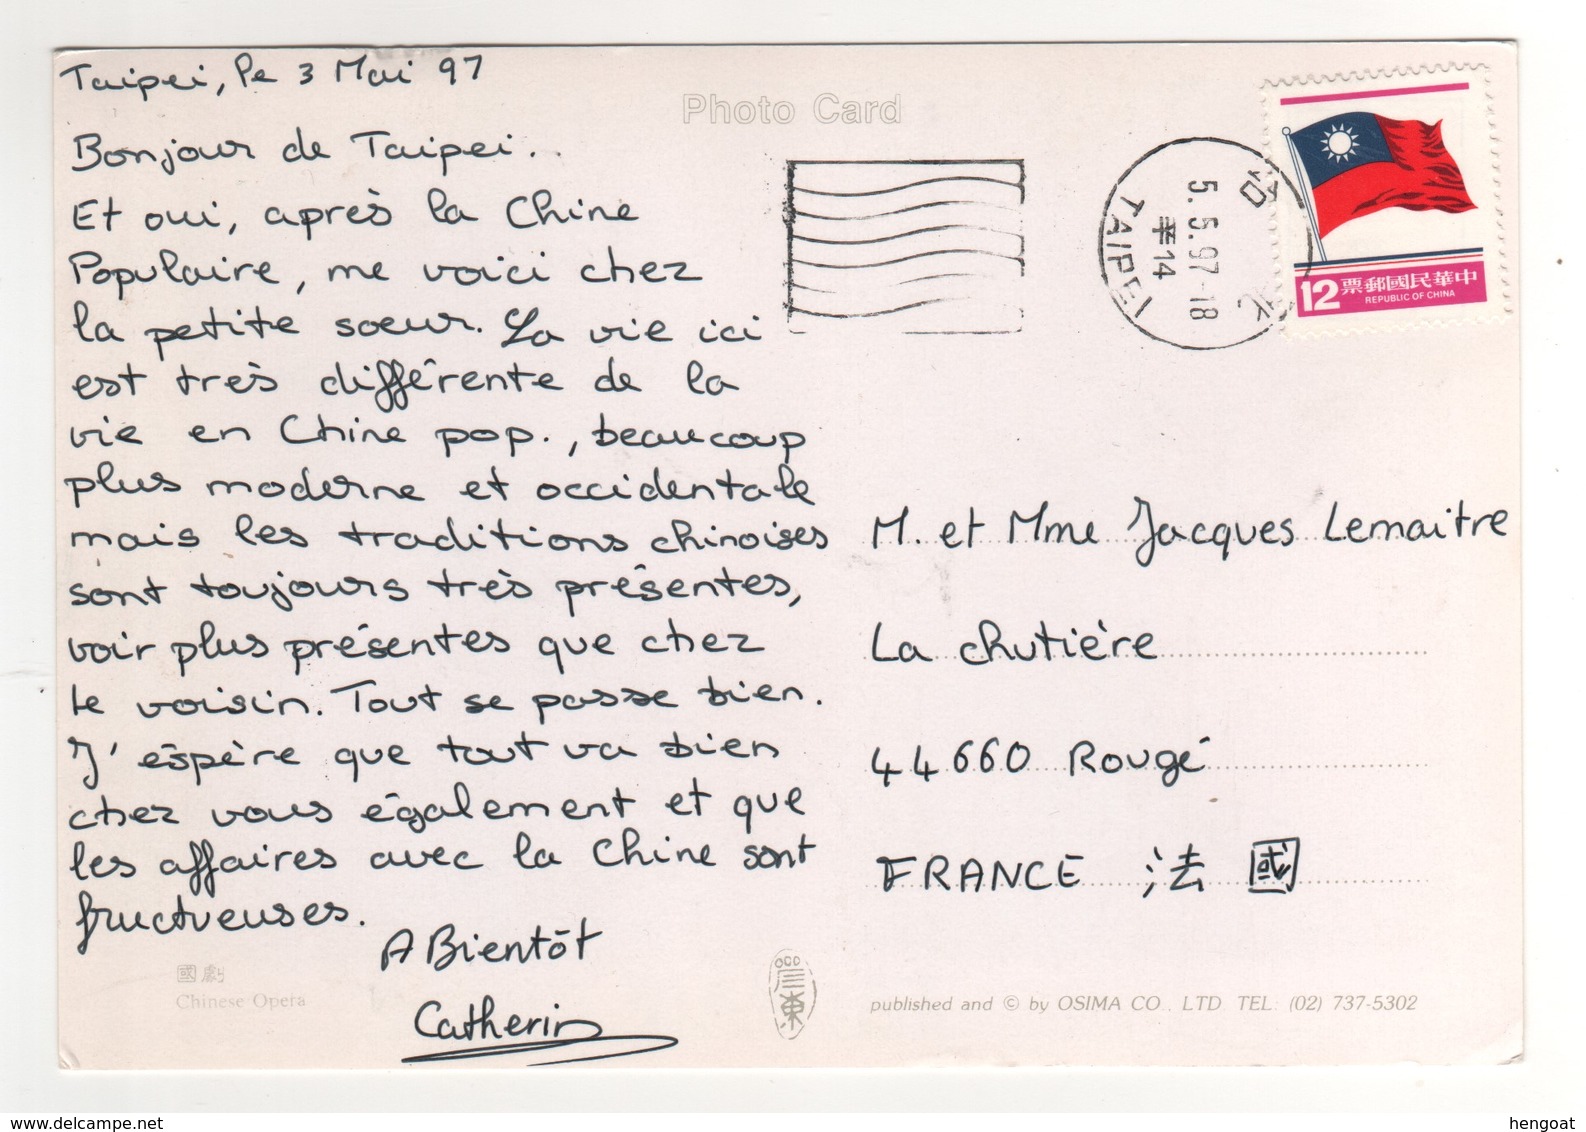 Taipei, le 3 Mai 97
Bonjour de Taipei..
Et oui, après la Chine
Populaire, me voici chez
la petite soeur. La vie ici
est très différente de la
vie en Chine pop., beaucoup
plus moderne et occidentale
mais les traditions chinoises
sont toujours très présentes,
voir plus présentes que chez
le voisin. Tout se passe bien.
J'espère que tout va bien
chez vous également et que
les affaires avec la Chine sont
fructueuses.
A Bientôt
Catherine
國劇
Chinese Opera
Photo Card
台北
5.5.97-18
14
TAIPEI
12 票郵國民華中
REPUBLIC OF CHINA
M. et Mme Jacques Lemaitre
La Chutière
44660 Rougé
FRANCE 法國
published and © by OSIMA CO., LTD TEL: (02) 737-5302
www.delcampe.net
hengoat